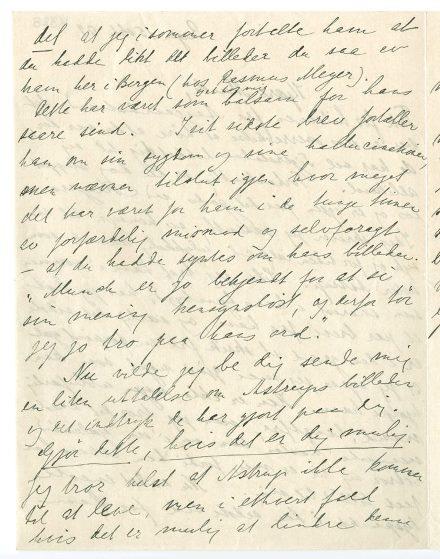 det at jeg i sommer fortalte ham at
du hadde likt det billeder du saa av
ham her i Bergen (hos Rasmus Meyer).
Dette har været som balsam for hans
saare sind. I sit sidste brev fortæller
han om sin sygdom og sine hallucinationer,
men nævner tilslut igjen hvor meget
det har været for ham i de tunge timer
av forfærdelig mismod og selvforagt
– at du hadde syntes om hans billeder.
"Munch er jo bekjendt for at si
sin mening hensynsløst, og derfor tør
jeg jo tro paa hans ord."
Nu vilde jeg be dig sende mig
en liten uttalelse om Astrups billeder
og det indtryk de har gjort paa dig.
Gjør dette, hvis det er dig mulig
Jeg tror helst at Astrup ikke kommer
til at leve, men i ethvert fald
hvis det er mulig at lindre denne